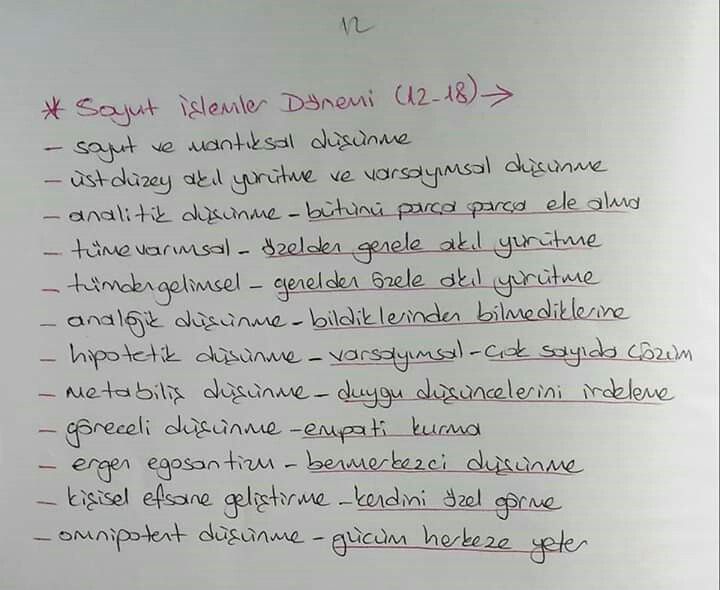 12
* Soyut işlemler Dönemi (12-18) →
- soyut ve mantıksal düşünme
- üst düzey akıl yürütme ve varsayımsal düşünme
- analitik düşünme - bütünü parça parça ele alma
- tümevarımsal - özelden genele akıl yürütme
- tümdengelimsel - genelden özele akıl yürütme
- analojik düşünme - bildiklerinden bilmediklerine
- hipotetik düşünme - varsayımsal - çok sayıda çözüm
- metabiliş düşünme - duygu düşüncelerini irdeleme
- göreceli düşünme - empati kurma
- ergen egosantizm - benmerkezci düşünme
- kişisel efsane geliştirme - kendini özel görme
- omnipotent düşünme - gücüm herkeze yeter